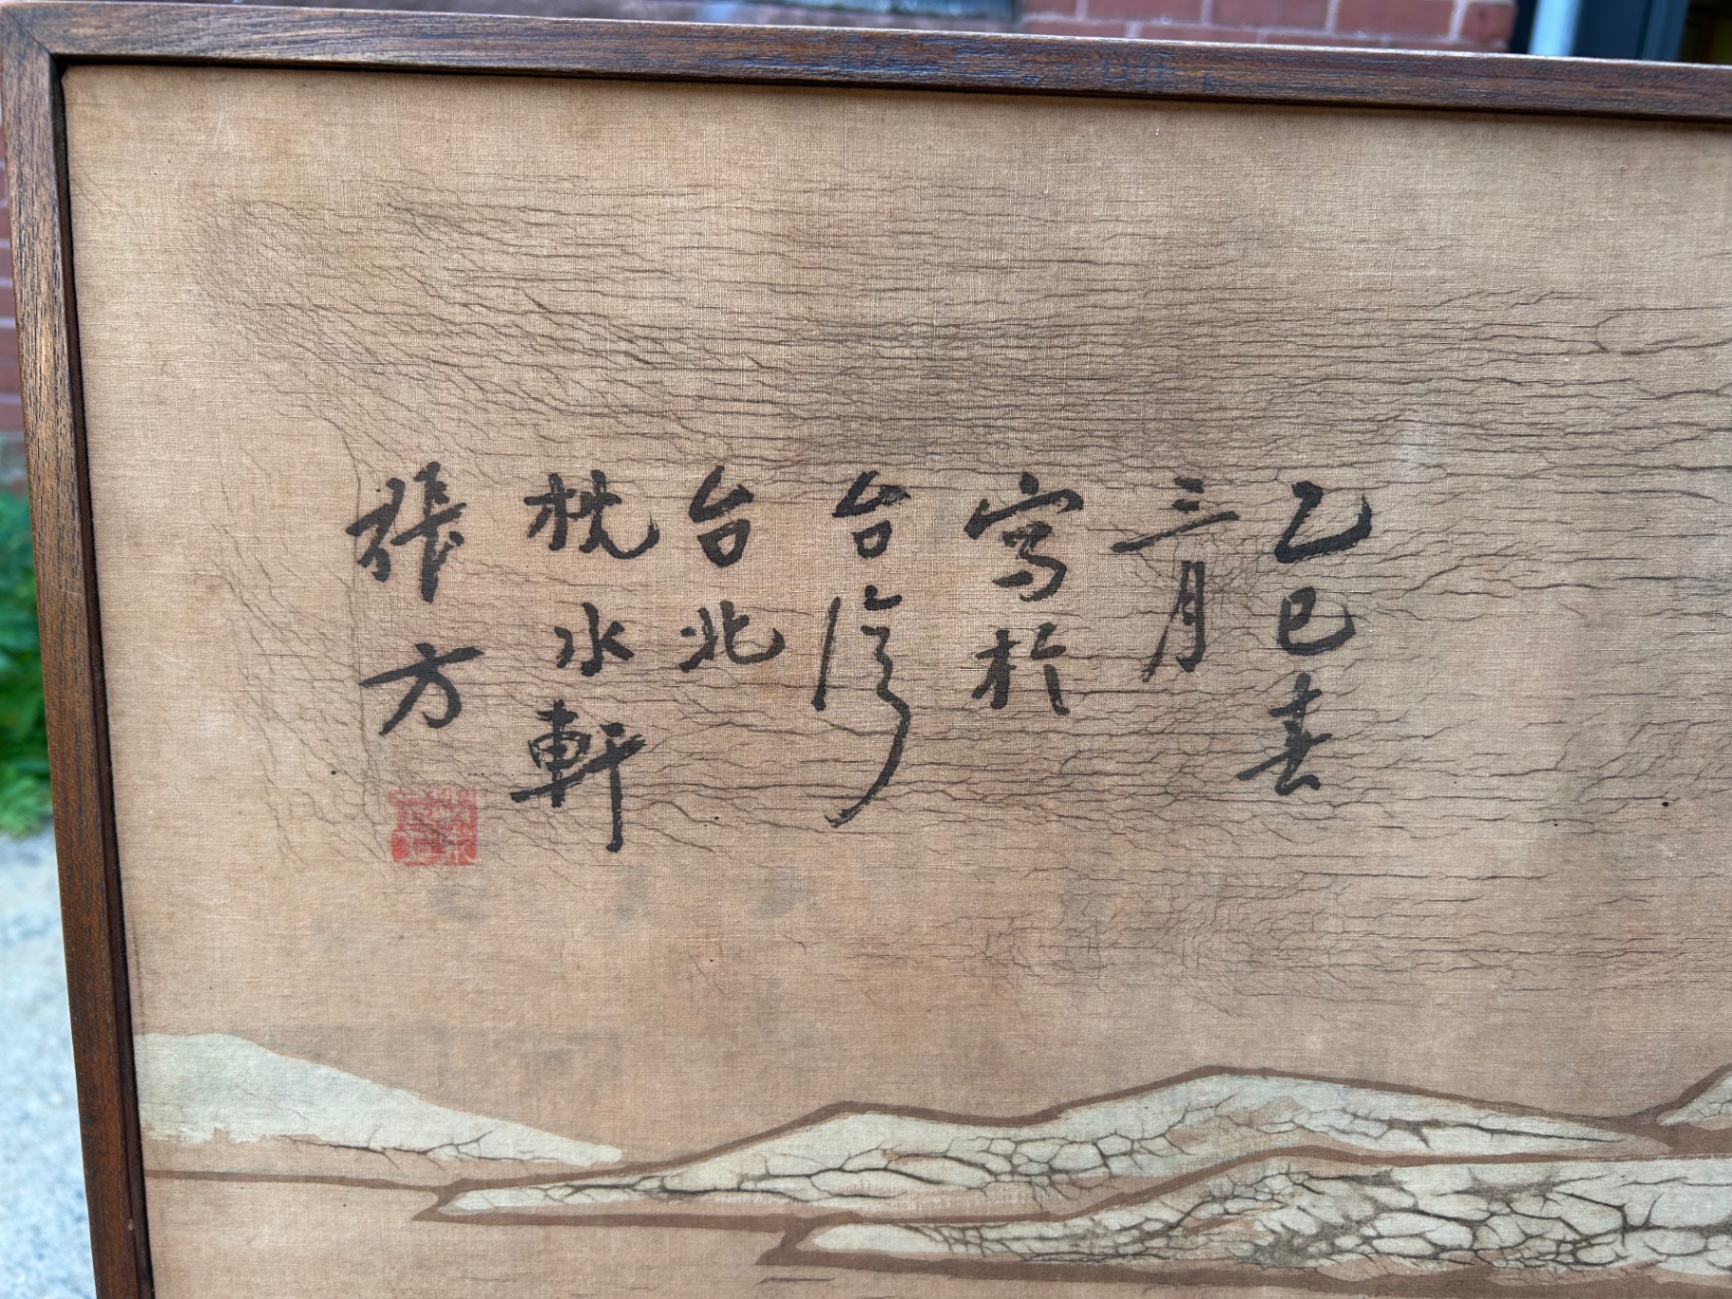 乙巳春
三月
寫於
台灣
台北
枕水軒
張方